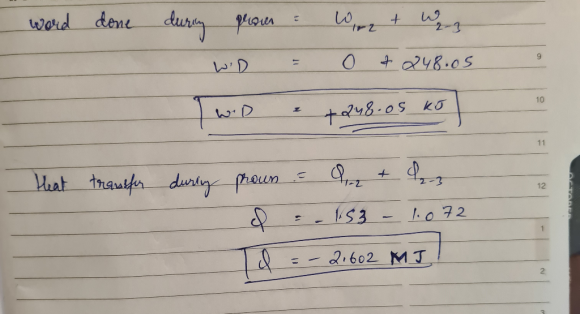 word done during process = W₁₋₂ + W₂₋₃
W.D = 0 + 248.05
W.D = +248.05 KJ
Heat transfer during process = Q₁₋₂ + Q₂₋₃
Q = - 1.53 - 1.072
Q = - 2.602 MJ
9
10
11
12
1
2
3